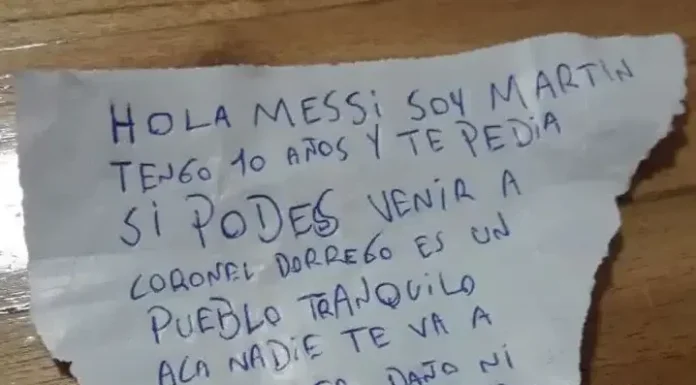 HOLA MESSI SOY MARTIN
TENGO 10 AÑOS Y TE PEDIA
SI PODES VENIR A
CORONEL DORREGO ES UN
PUEBLO TRANQUILO
ACA NADIE TE VA A
DAÑO NI